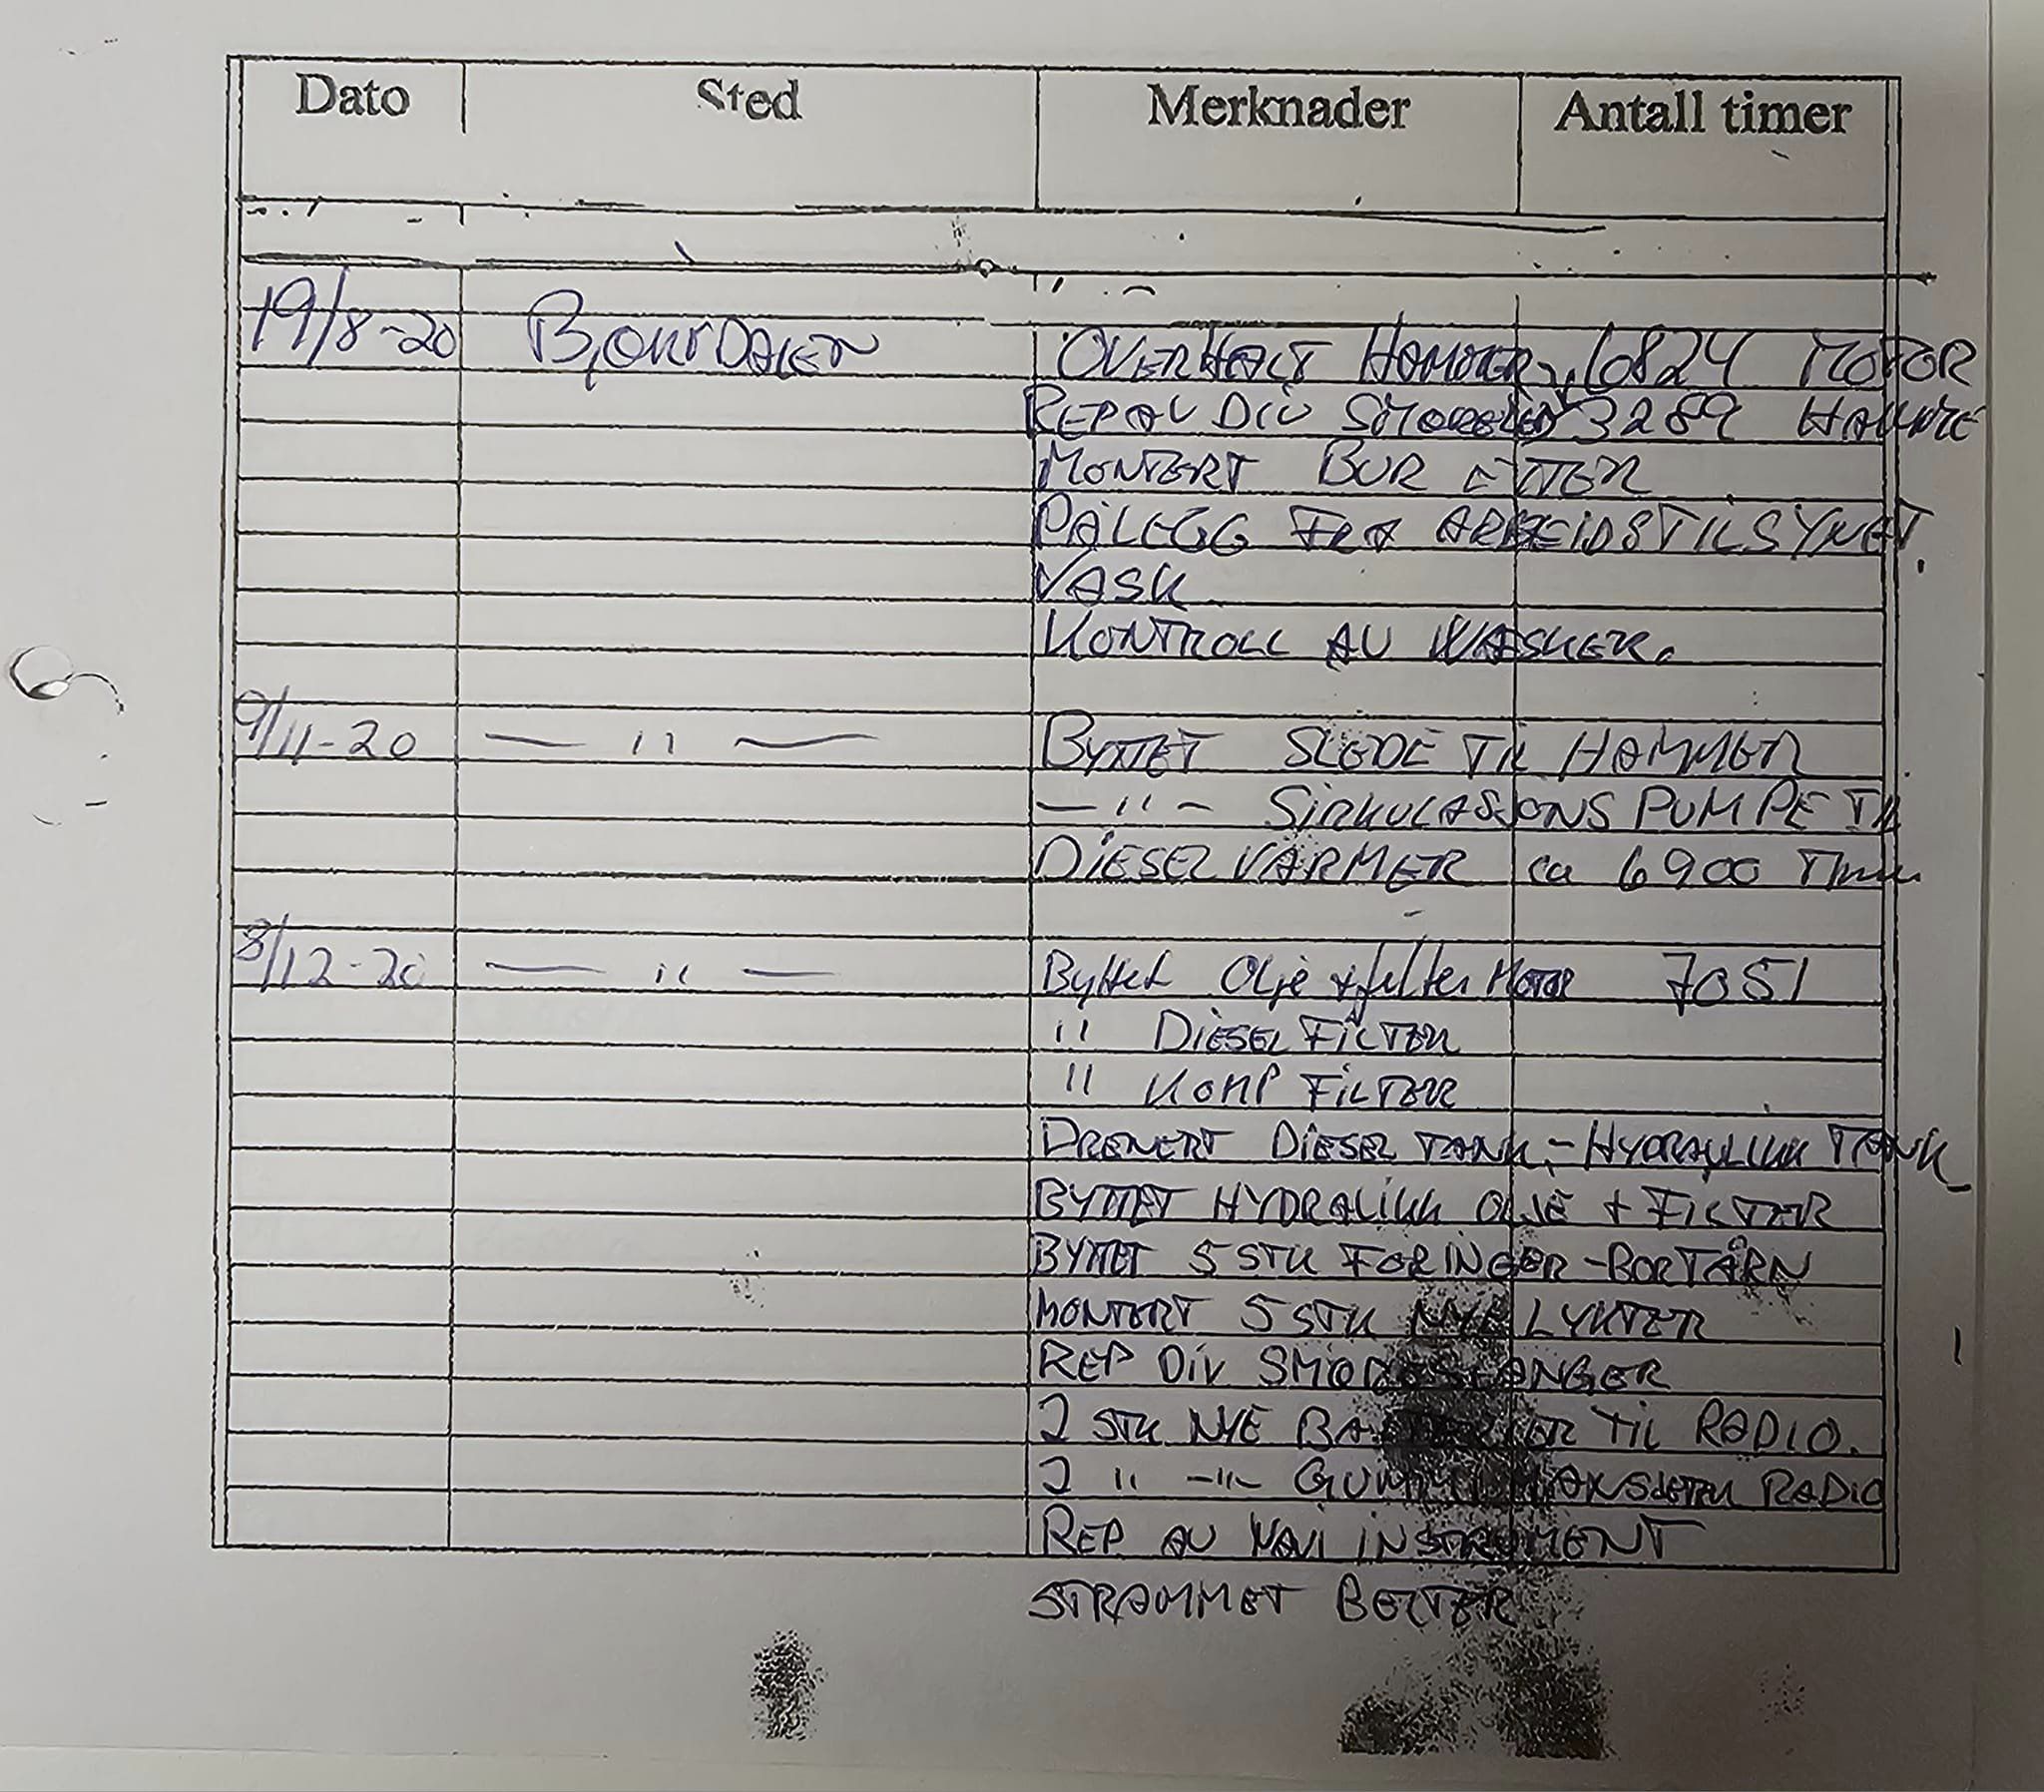 Dato Sted Merknader Antall timer
19/8-20 OVERHALT HAMMER, 6824 MOTOR
REP AV DIV 3289
MONTERT BUR ETTER
PÅLEGG FRA ARBEIDSTILSYNET.
VASK
KONTROLL AV WASHER.
9/11-20 — " — BYTTET SLEDE TIL HAMMER
— " — SIRKULASJONS PUMPE TIL
DIESELVARMER ca 6900 Timer
8/12-20 — " — Byttet Olje + filter MOTOR 7051
" DIESEL FILTER
" KOMP FILTER
DRENERT DIESEL TANK - HYDRAULIKK TANK
BYTTET HYDRALIKK OLJE + FILTER
BYTTET 5 STK FORINGER - BORTÅRN
MONTERT 5 STK NYE LYKTER
REP DIV SMØRESLANGER
2 STK NYE BATTERIER TIL RADIO.
2 " -"- RADIO
REP AV INSTRUMENT
STRAMMET BELTER